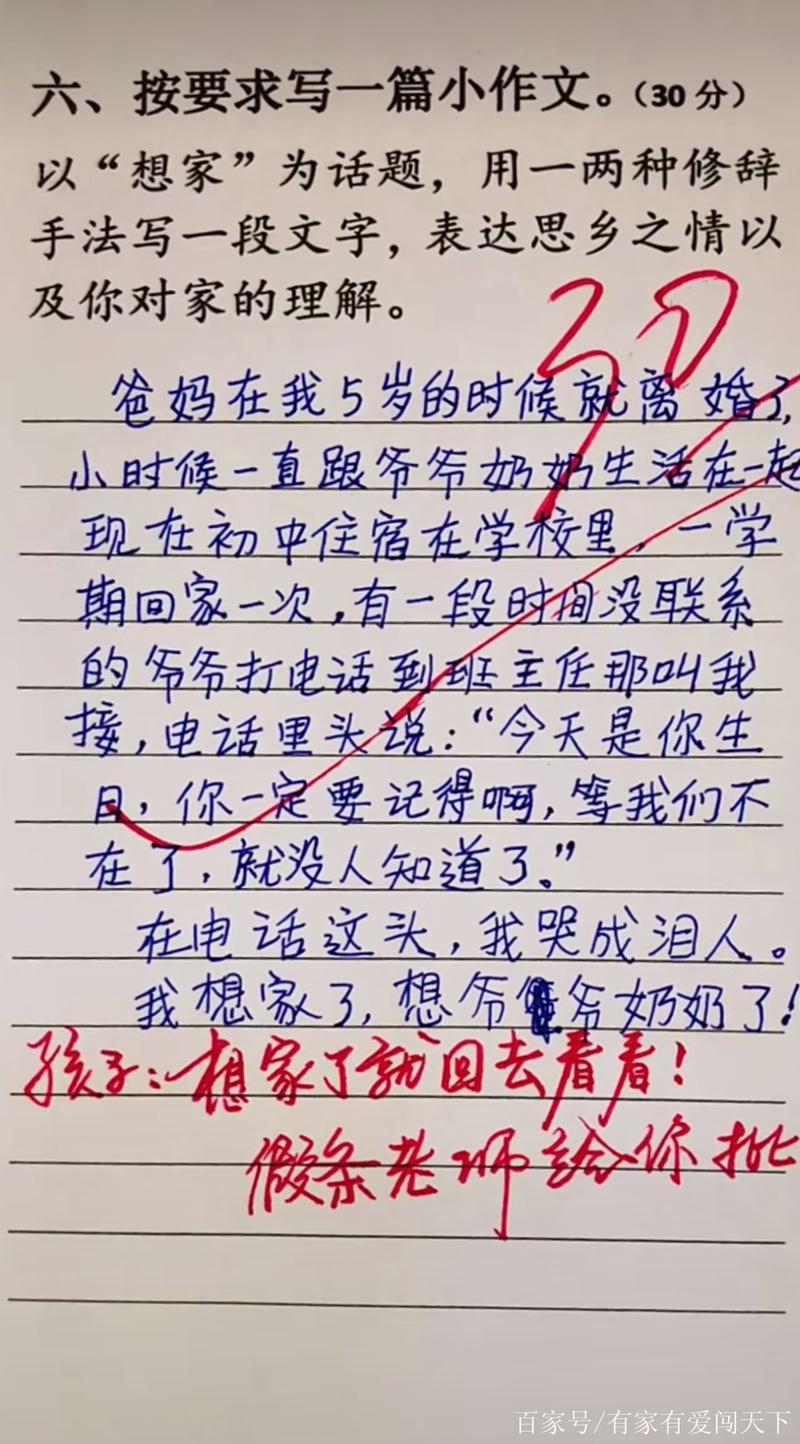 六、按要求写一篇小作文。（30分）
以“想家”为话题，用一两种修辞
手法写一段文字，表达思乡之情以
及你对家的理解。
30
爸妈在我5岁的时候就离婚了，
小时候一直跟爷爷奶奶生活在一起
现在初中住宿在学校里，一学
期回家一次，有一段时间没联系
的爷爷打电话到班主任那叫我
接，电话里头说：“今天是你生
日，你一定要记得啊，等我们不
在了，就没人知道了。”
在电话这头，我哭成泪人。
我想家了，想爷爷奶奶了！
孩子：想家了就回去看看！
假条老师给你批
百家号/有家有爱闯天下